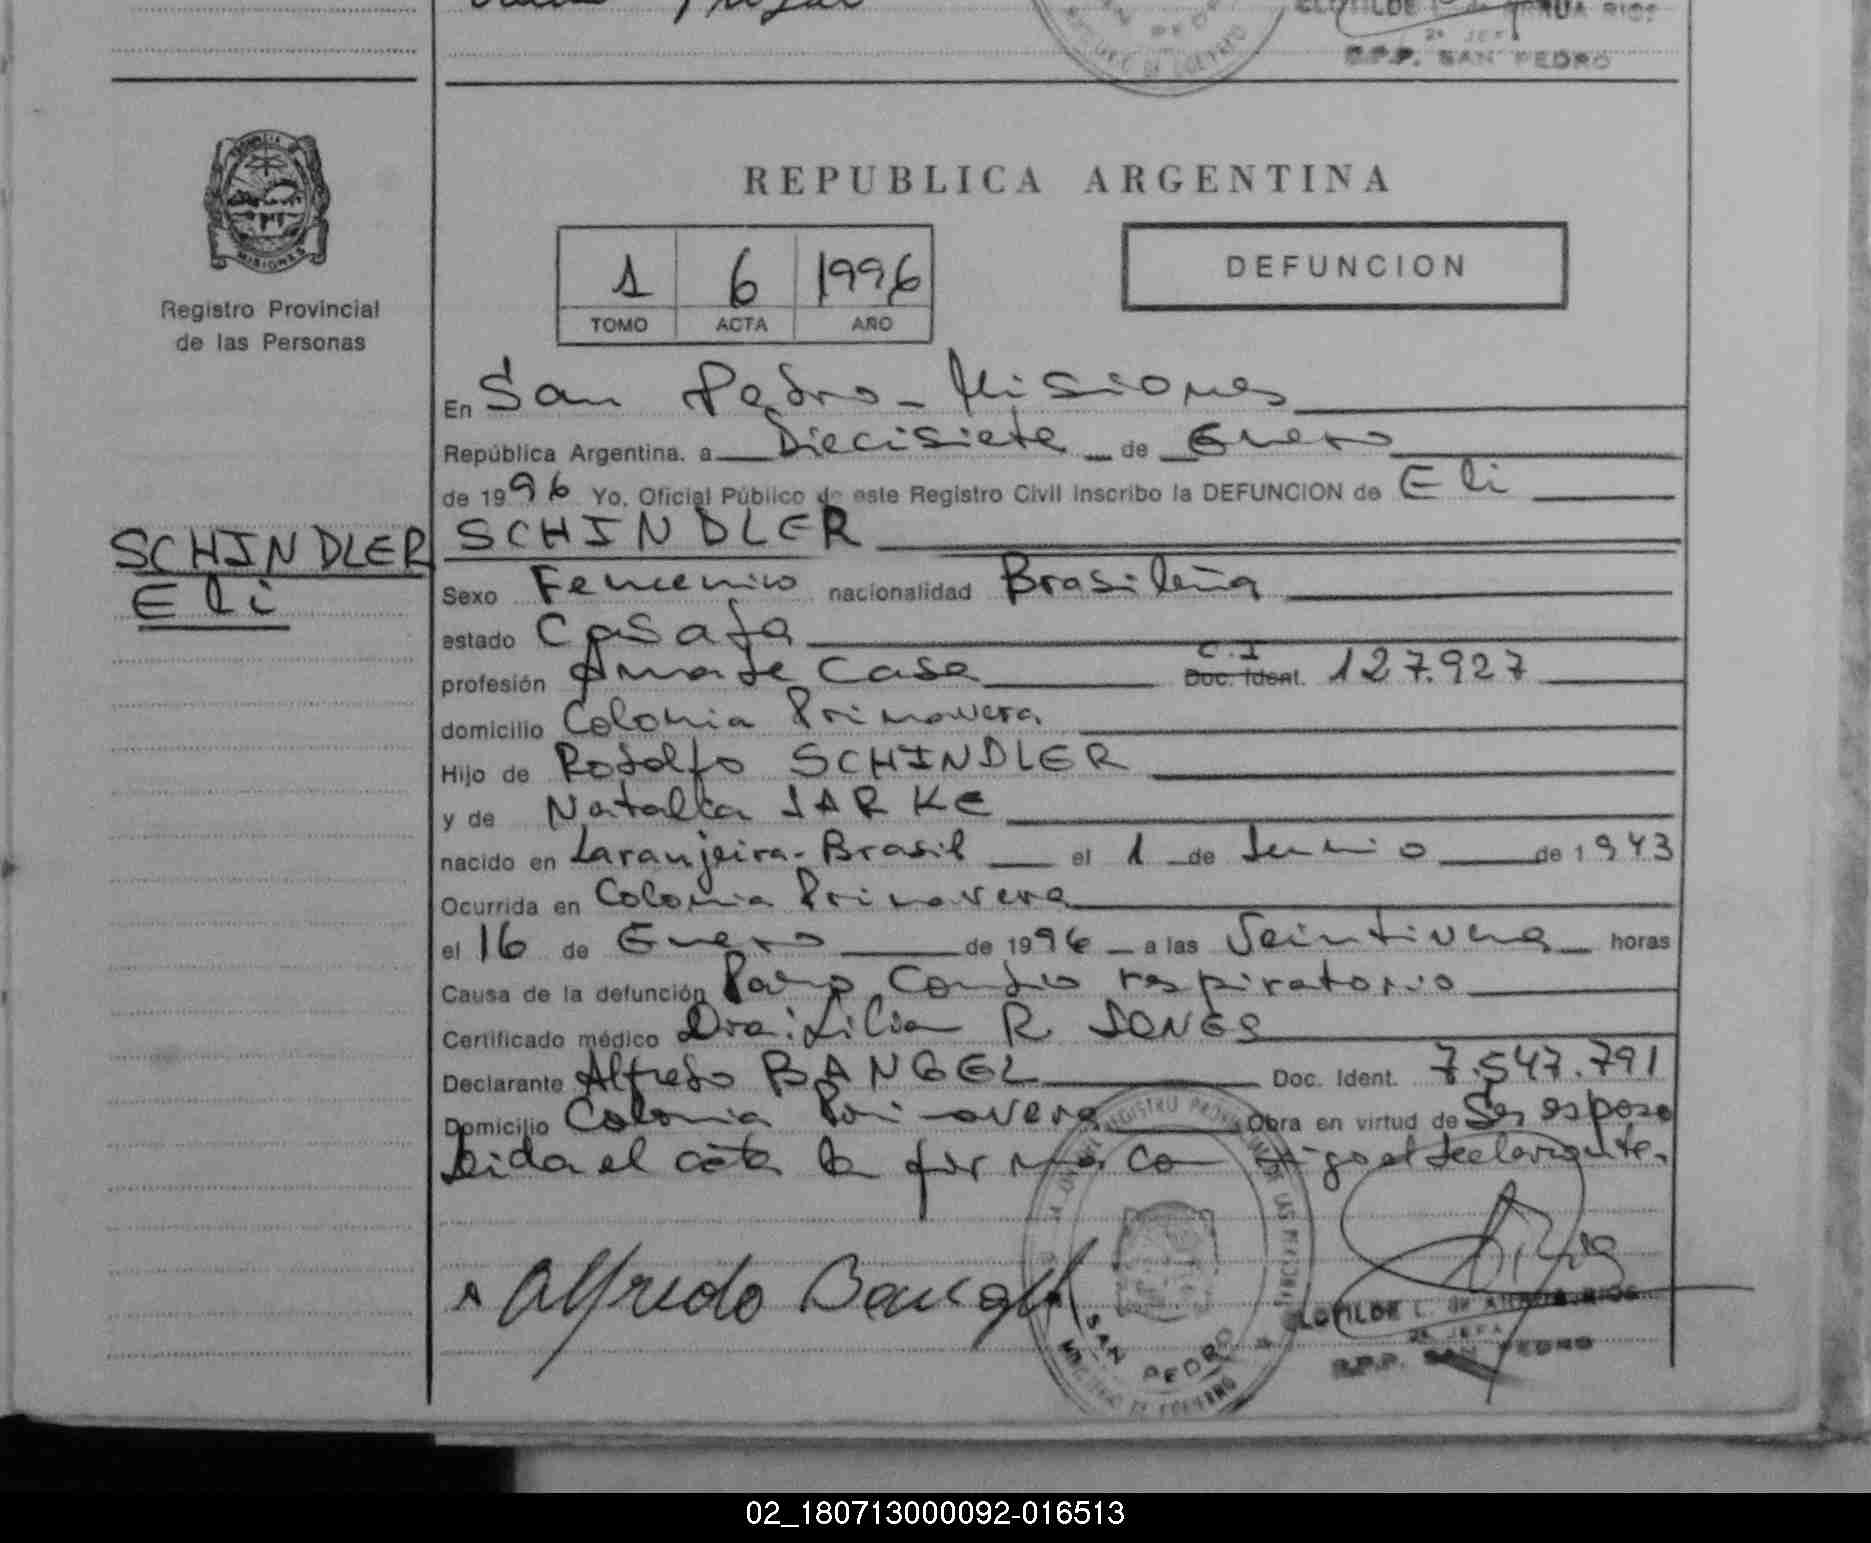 CLOTILDE L. de ARRUA RIOS
2ª JEFA
R.P.P. SAN PEDRO
Registro Provincial
de las Personas
REPUBLICA ARGENTINA
1 6 1996
TOMO ACTA AÑO
DEFUNCION
En San Pedro - Misiones
República Argentina. a Diecisiete de Enero
de 1996 Yo, Oficial Público de este Registro Civil inscribo la DEFUNCION de Eli
SCHINDLER
SCHINDLER
Eli
Sexo Femenino nacionalidad Brasileña
estado Casada
profesión Ama de Casa C.I Doc. Ident. 127.927
domicilio Colonia Primavera
Hijo de Rodolfo SCHINDLER
y de Natalia JARKE
nacido en Laranjeira-Brasil el 1 de Junio de 1943
Ocurrida en Colonia Primavera
el 16 de Enero de 1996 a las Veintiuna horas
Causa de la defunción Paro Cardio respiratorio
Certificado médico Dra: Lilian R. JONES
Declarante Alfredo BANGEL Doc. Ident. 7.547.791
Domicilio Colonia Primavera Obra en virtud de Ser esposo
Leida el acta la firma conmigo el declarante.
Alfredo Bangel
SAN PEDRO
CLOTILDE L. de ARRUA RIOS
2ª JEFA
R.P.P. SAN PEDRO
02_180713000092-016513